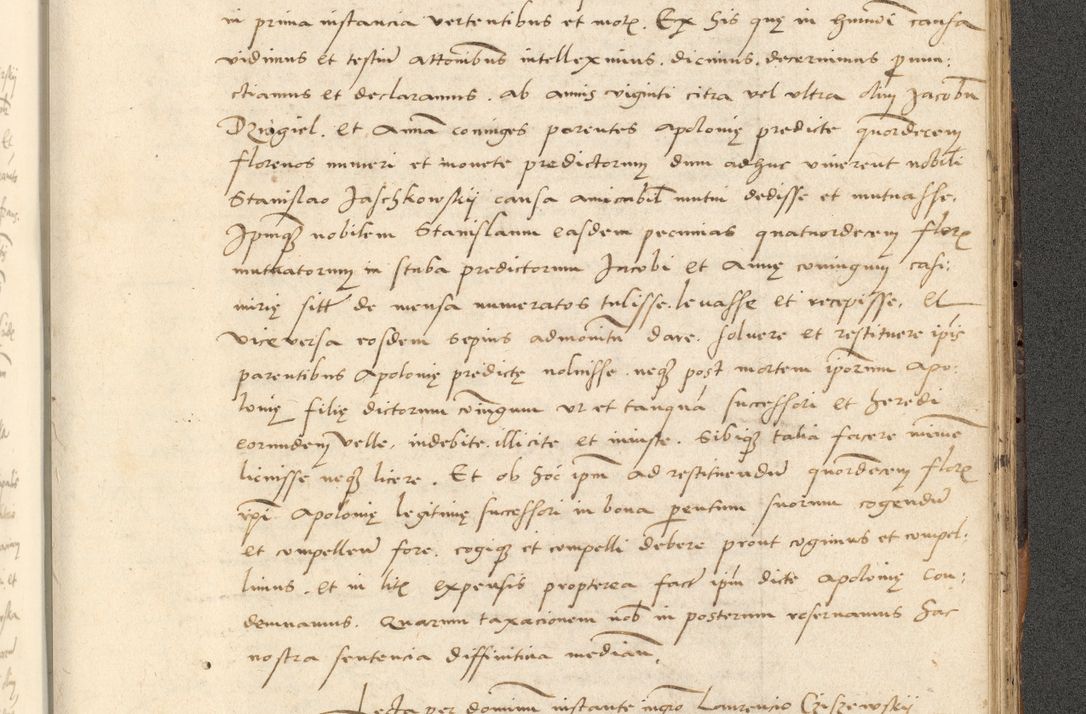 in prima instancia vertentibus et motis. Ex his quę in huiusmodi causa
vidimus et testium attonibus intelleximus, dicimus, decernimus pronun:
ctiamus et declaramus. ab annis viginti citra vel ultra olim Jacobum
Dzirgiel. et Annam coniuges parentes Apolonię predicte quordecem
florenos numeri et monete predictorum dum adhuc viverent nobili
Stanislao Jaschkowskij causa amicabil mutui dedisse et mutuasse.
Ipsumque nobilem Stanislaum easdem pecunias quatuordecem flor
mutuatorum in stuba predictorum Jacobi et Annę coniugum casi:
mirię sitt de mensa numeratos tulisse. levasse et recepisse. Et
vice versa eosdem sepius admonitum dare. solvere et restituere ipsis
parentibus Apolonię predictę noluisse. neque post mortem ipsorum Apo:
lonię filię dictorum coniugum ut et tanquam successori et heredi
eorundem velle. indebite. illicite et iniuste. Sibique talia facere minime
licuisse neque licere. Et ob hoc ipsum ad restituendum quordecem flor
ipsi Apolonię legitimę successori in bona parentum suorum cogendum
et compellendum fore. cogique et compelli debere prout cogimus et compel:
limus. et in litis expensis propterea factis ipsum dicte Apolonię con:
demnamus. Quarum taxacionem nobis in posterum reservamus hac
nostra sentencia diffinitiva mediante.
Lecta per dominum instante ingro Laurencio Cziszewskij